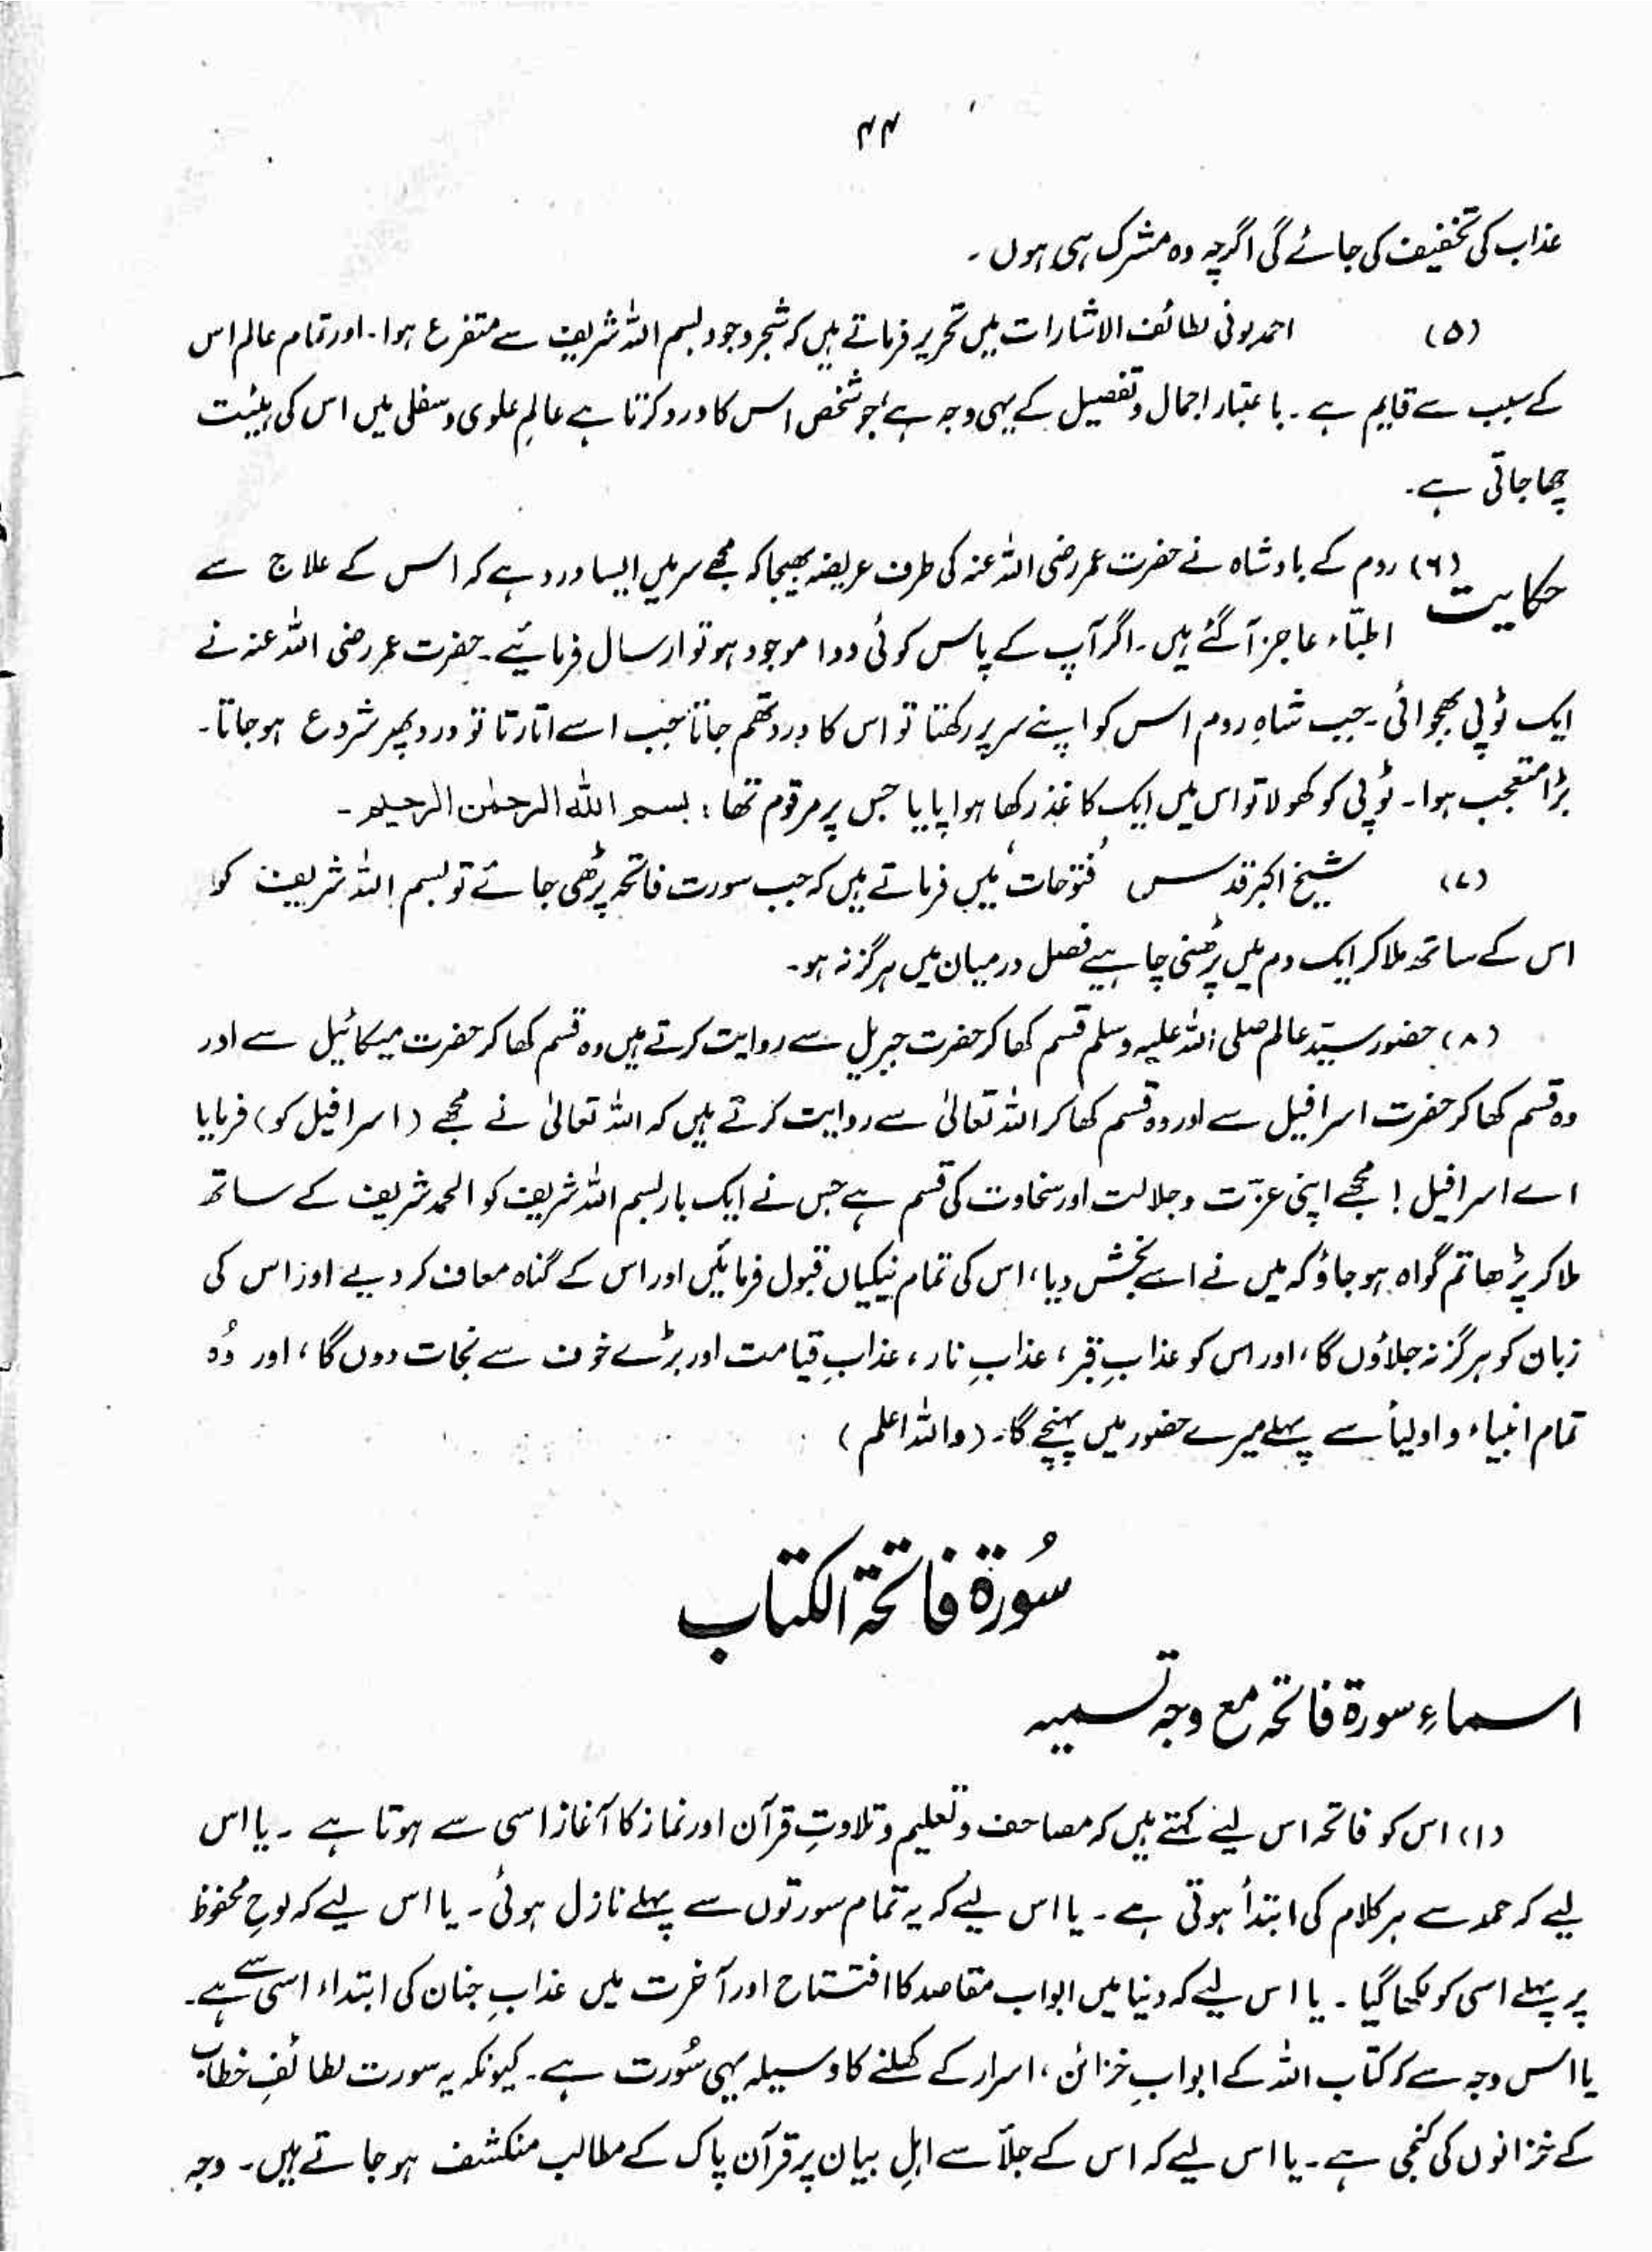 ۴۴
عذاب کی تخفیف کی جائے گی اگرچہ وہ مشرک ہی ہوں۔
(۵) احمد بونی لطائف الاشارات میں تحریر فرماتے ہیں کہ شجر وجود بسم اللہ شریف سے متفرع ہوا۔ اور تمام عالم اس
کے سبب سے قایم ہے۔ باعتبار اجمال و تفصیل کے یہی وجہ ہے جو شخص اس کا ورد کرتا ہے عالمِ علوی و سفلی میں اس کی ہیئت
چھا جاتی ہے۔
حکایت (۶) روم کے بادشاہ نے حضرت عمر رضی اللہ عنہ کی طرف عریضہ بھیجا کہ مجھے سر میں ایسا درد ہے کہ اس کے علاج سے
اطبّاء عاجز آ گئے ہیں۔ اگر آپ کے پاس کوئی دوا موجود ہو تو ارسال فرمائیے۔ حضرت عمر رضی اللہ عنہ نے
ایک ٹوپی بھجوائی۔ جب شاہِ روم اس کو اپنے سر پر رکھتا تو اس کا درد تھم جاتا جب اسے اتارتا تو درد پھر شروع ہو جاتا۔
بڑا متعجب ہوا۔ ٹوپی کو کھولا تو اس میں ایک کاغذ رکھا ہوا پایا جس پر مرقوم تھا : بسم اللہ الرحمٰن الرحیم۔
(۷) شیخ اکبر قدس ’فتوحات‘ میں فرماتے ہیں کہ جب سورت فاتحہ پڑھی جائے تو بسم اللہ شریف کو
اس کے ساتھ ملا کر ایک دم میں پڑھنی چاہیے فصل درمیان میں ہرگز نہ ہو۔
(۸) حضور سیّدِ عالم صلی اللہ علیہ وسلم قسم کھا کر حضرت جبریل سے روایت کرتے ہیں وہ قسم کھا کر حضرت میکائیل سے اور
وہ قسم کھا کر حضرت اسرافیل سے اور وہ قسم کھا کر اللہ تعالیٰ سے روایت کرتے ہیں کہ اللہ تعالیٰ نے مجھے (اسرافیل کو) فرمایا
اے اسرافیل! مجھے اپنی عزّت و جلالت اور سخاوت کی قسم ہے جس نے ایک بار بسم اللہ شریف کو الحمد شریف کے ساتھ
ملا کر پڑھا تم گواہ ہو جاؤ کہ میں نے اسے بخش دیا، اس کی تمام نیکیاں قبول فرمائیں اور اس کے گناہ معاف کر دیے اور اس کی
زبان کو ہرگز نہ جلاؤں گا، اور اس کو عذابِ قبر، عذابِ نار، عذابِ قیامت اور بڑے خوف سے نجات دوں گا، اور وُہ
تمام انبیاء و اولیأ سے پہلے میرے حضور میں پہنچے گا۔ (واللہ اعلم)
سُورۃ فاتحۃ الکتاب
اسماءِ سورۃ فاتحہ مع وجہ تسمیہ
(۱) اس کو فاتحہ اس لیے کہتے ہیں کہ مصاحف و تعلیم و تلاوتِ قرآن اور نماز کا آغاز اسی سے ہوتا ہے۔ یا اس
لیے کہ حمد سے ہر کلام کی ابتدأ ہوتی ہے۔ یا اس لیے کہ یہ تمام سورتوں سے پہلے نازل ہوئی۔ یا اس لیے کہ لوحِ محفوظ
پر پہلے اسی کو لکھا گیا۔ یا اس لیے کہ دنیا میں ابواب مقاصد کا افتتاح اور آخرت میں عذابِ جنان کی ابتداء اسی سے ہے۔
یا اس وجہ سے کہ کتاب اللہ کے ابوابِ خزائن، اسرار کے کھلنے کا وسیلہ یہی سُورت ہے۔ کیونکہ یہ سورت لطائفِ خطاب
کے خزانوں کی کنجی ہے۔ یا اس لیے کہ اس کے جلأ سے اہلِ بیان پر قرآن پاک کے مطالب منکشف ہو جاتے ہیں۔ وجہ